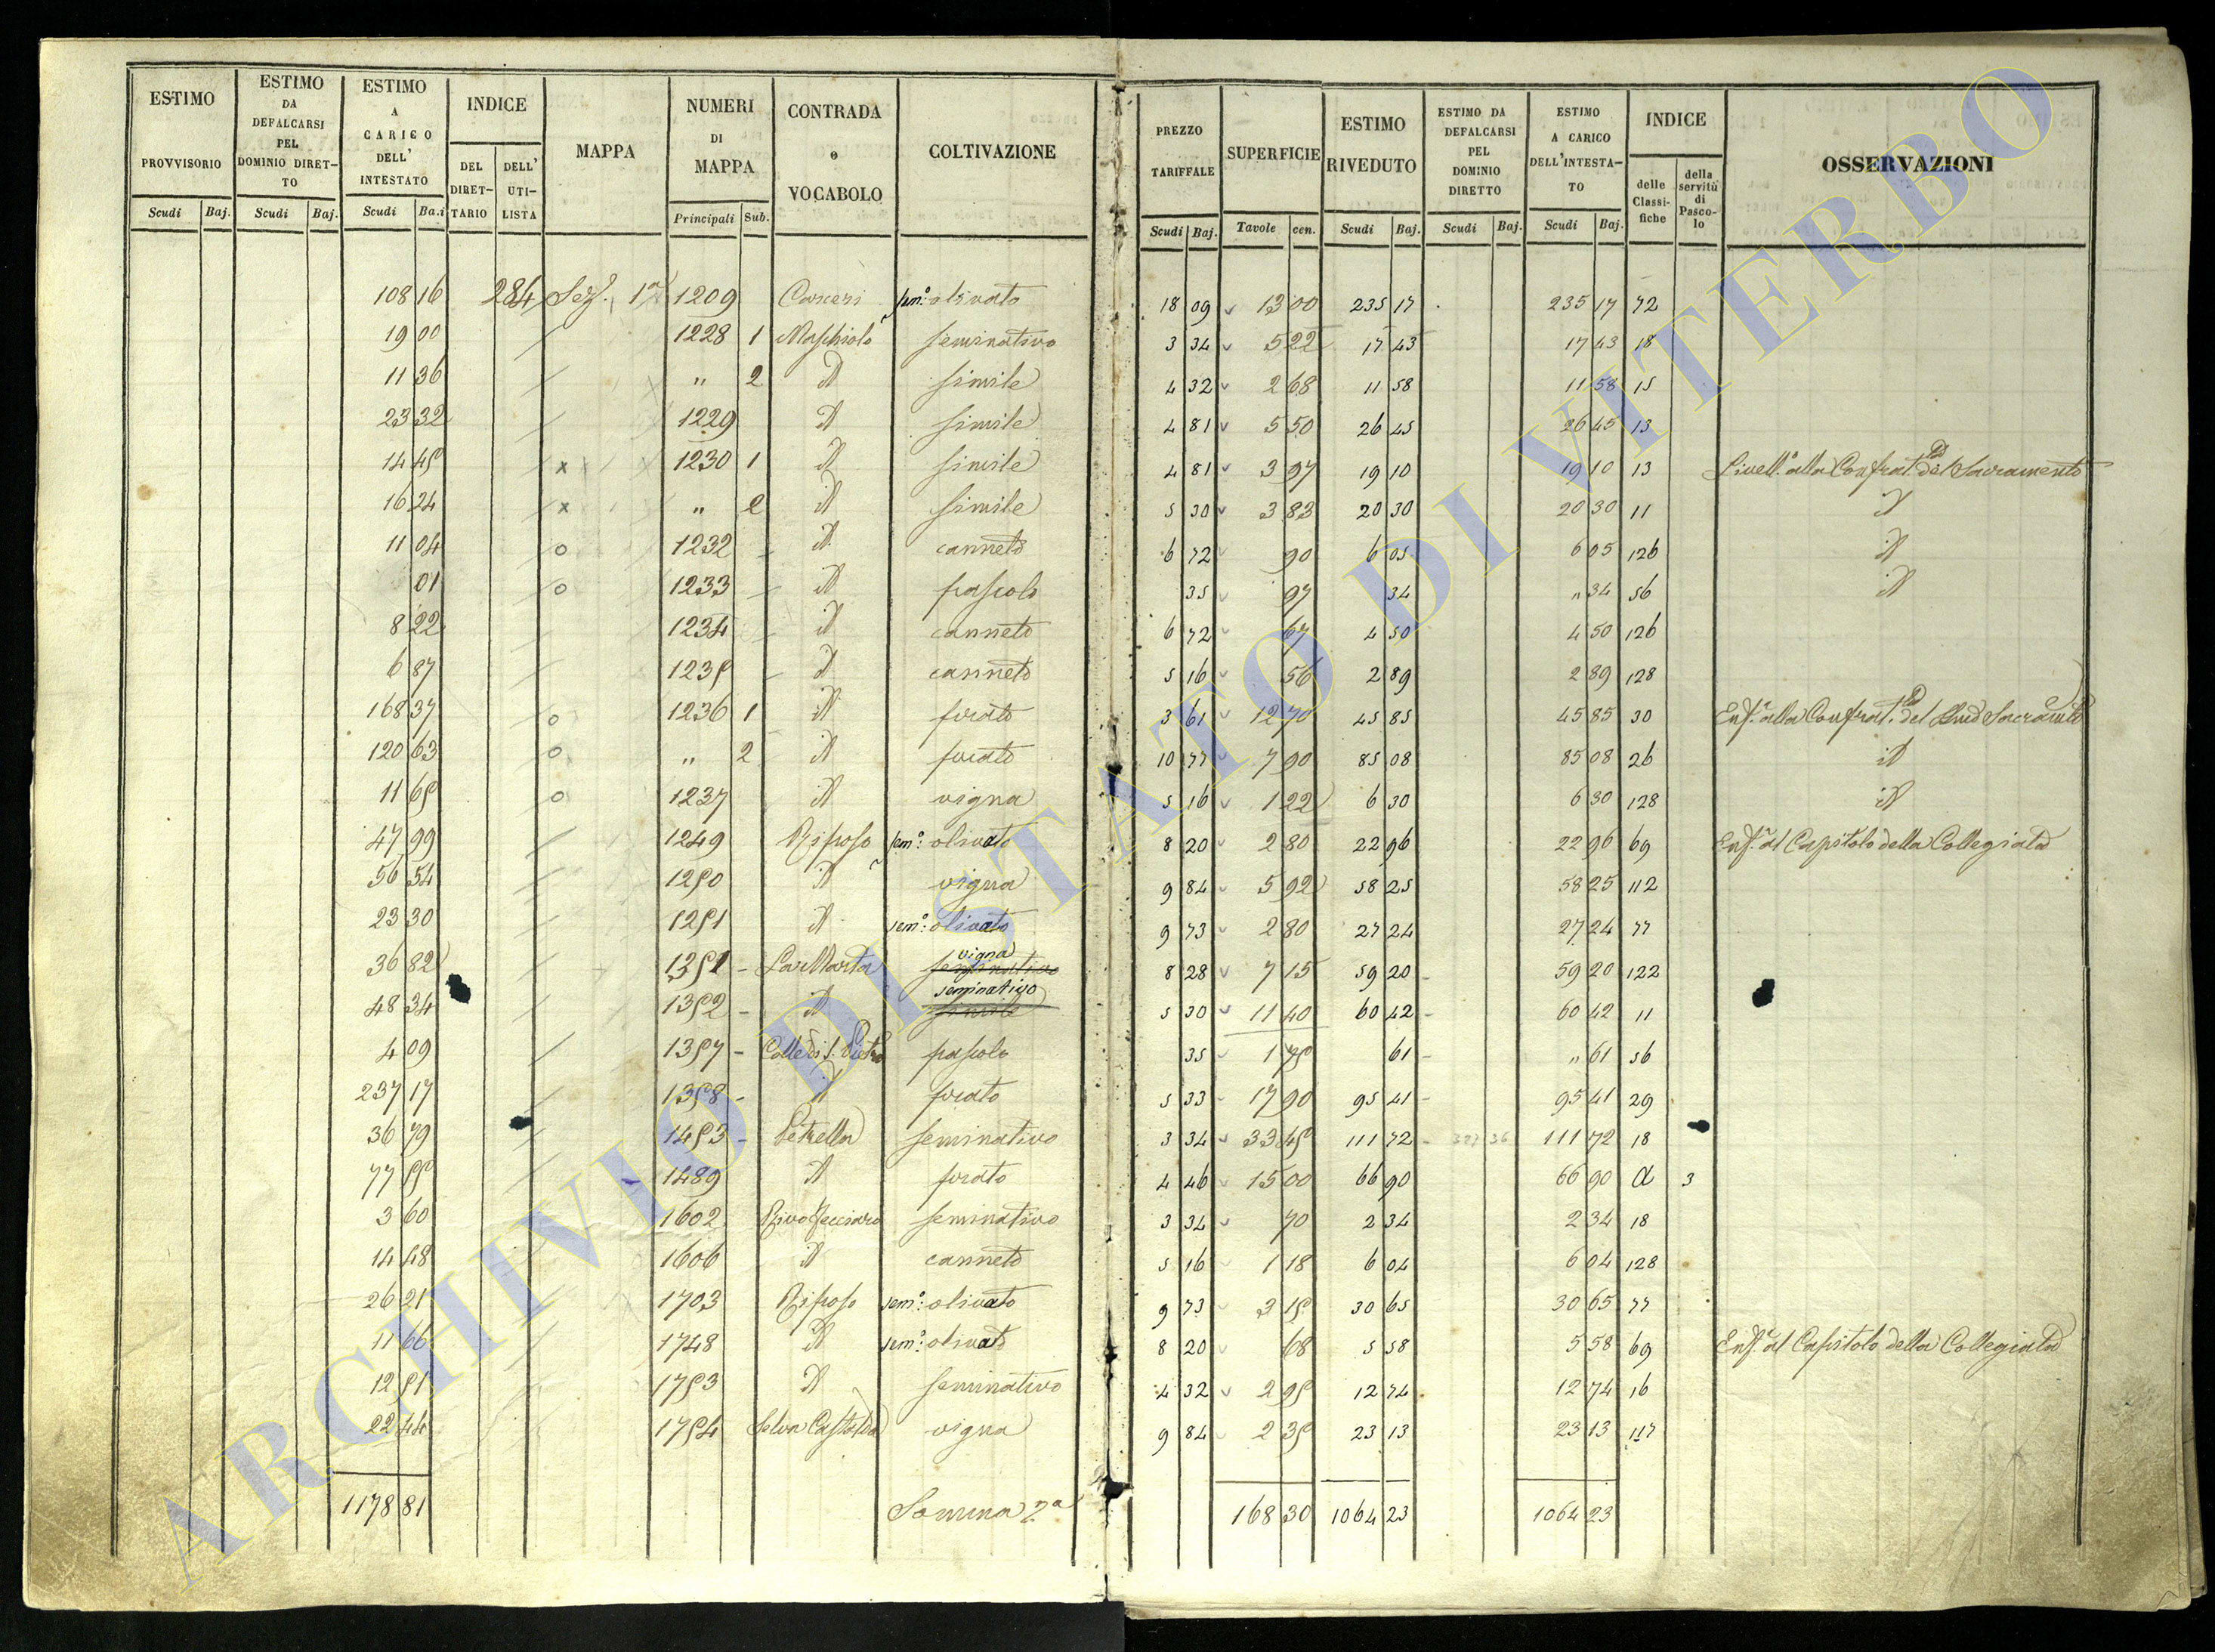 ESTIMO PROVVISORIO Scudi Baj. | ESTIMO DA DEFALCARSI PEL DOMINIO DIRETTO Scudi Baj. | ESTIMO A CARICO DELL' INTESTATO Scudi Ba.i | INDICE DEL DIRETTARIO DELL' UTILISTA | MAPPA | NUMERI DI MAPPA Principali Sub. | CONTRADA o VOCABOLO | COLTIVAZIONE | PREZZO TARIFFALE Scudi Baj. | SUPERFICIE Tavole cen. | ESTIMO RIVEDUTO Scudi Baj. | ESTIMO DA DEFALCARSI PEL DOMINIO DIRETTO Scudi Baj. | ESTIMO A CARICO DELL'INTESTATO Scudi Baj. | INDICE delle Classifiche della servitù di Pascolo | OSSERVAZIONI
108 16 284 Sez. 1a 1209 Carceri sem.o olivato 18 09 13 00 235 17 235 17 72
19 00 1228 1 Maschiolo seminativo 3 34 5 22 17 43 17 43 18
11 36 " 2 id simile 4 32 2 68 11 58 11 58 15
23 32 1229 id simile 4 81 5 50 26 45 26 45 13
14 45 x 1230 1 id simile 4 81 3 97 19 10 19 10 13 Livell.o alla Confrat. del Sacramento
16 24 x " 2 id simile 5 30 3 83 20 30 20 30 11 id
11 04 o 1232 id canneto 6 72 90 6 05 6 05 126 id
01 o 1233 id pascolo 35 97 34 " 34 56 id
8 22 1234 id canneto 6 72 67 4 50 4 50 126
6 87 1235 id canneto 5 16 56 2 89 2 89 128
168 37 o 1236 1 id prato 3 61 12 70 45 85 45 85 30 Enf.a alla Confrat. del
120 63 o " 2 id prato 10 77 7 90 85 08 85 08 26 id
11 65 o 1237 id vigna 5 16 1 22 6 30 6 30 128 id
47 99 1249 Riposo sem.o olivato 8 20 2 80 22 96 22 96 69 Enf.a al Capitolo della Collegiata
56 54 1250 id vigna 9 84 5 92 58 25 58 25 112
23 30 1251 id sem.o olivato 9 73 2 80 27 24 27 24 77
36 82 1351 - La Marta seminativo vigna 8 28 7 15 59 20 59 20 122
48 34 1352 - id simile seminativo 5 30 11 40 60 42 60 42 11
4 09 1357 - Colle di S. Pietro pascolo 35 1 75 61 " 61 56
237 17 1358 - id prato 5 33 17 90 95 41 95 41 29
36 79 1453 - Petrella seminativo 3 34 33 45 111 72 111 72 18
77 55 1489 id prato 4 46 15 00 66 90 66 90 a 3
3 60 1602 seminativo 3 34 70 2 34 2 34 18
14 48 1606 id canneto 5 16 1 18 6 04 6 04 128
26 21 1703 Riposo sem.o olivato 9 73 3 15 30 65 30 65 77
11 66 1748 id sem.o olivato 8 20 68 5 58 5 58 69 Enf.a al Capitolo della Collegiata
12 51 1753 id seminativo 4 32 2 95 12 74 12 74 16
22 44 1754 Selva Castalda vigna 9 84 2 35 23 13 23 13 117
1178 81 Somma 2a 168 30 1064 23 1064 23
ARCHIVIO DI STATO DI VITERBO